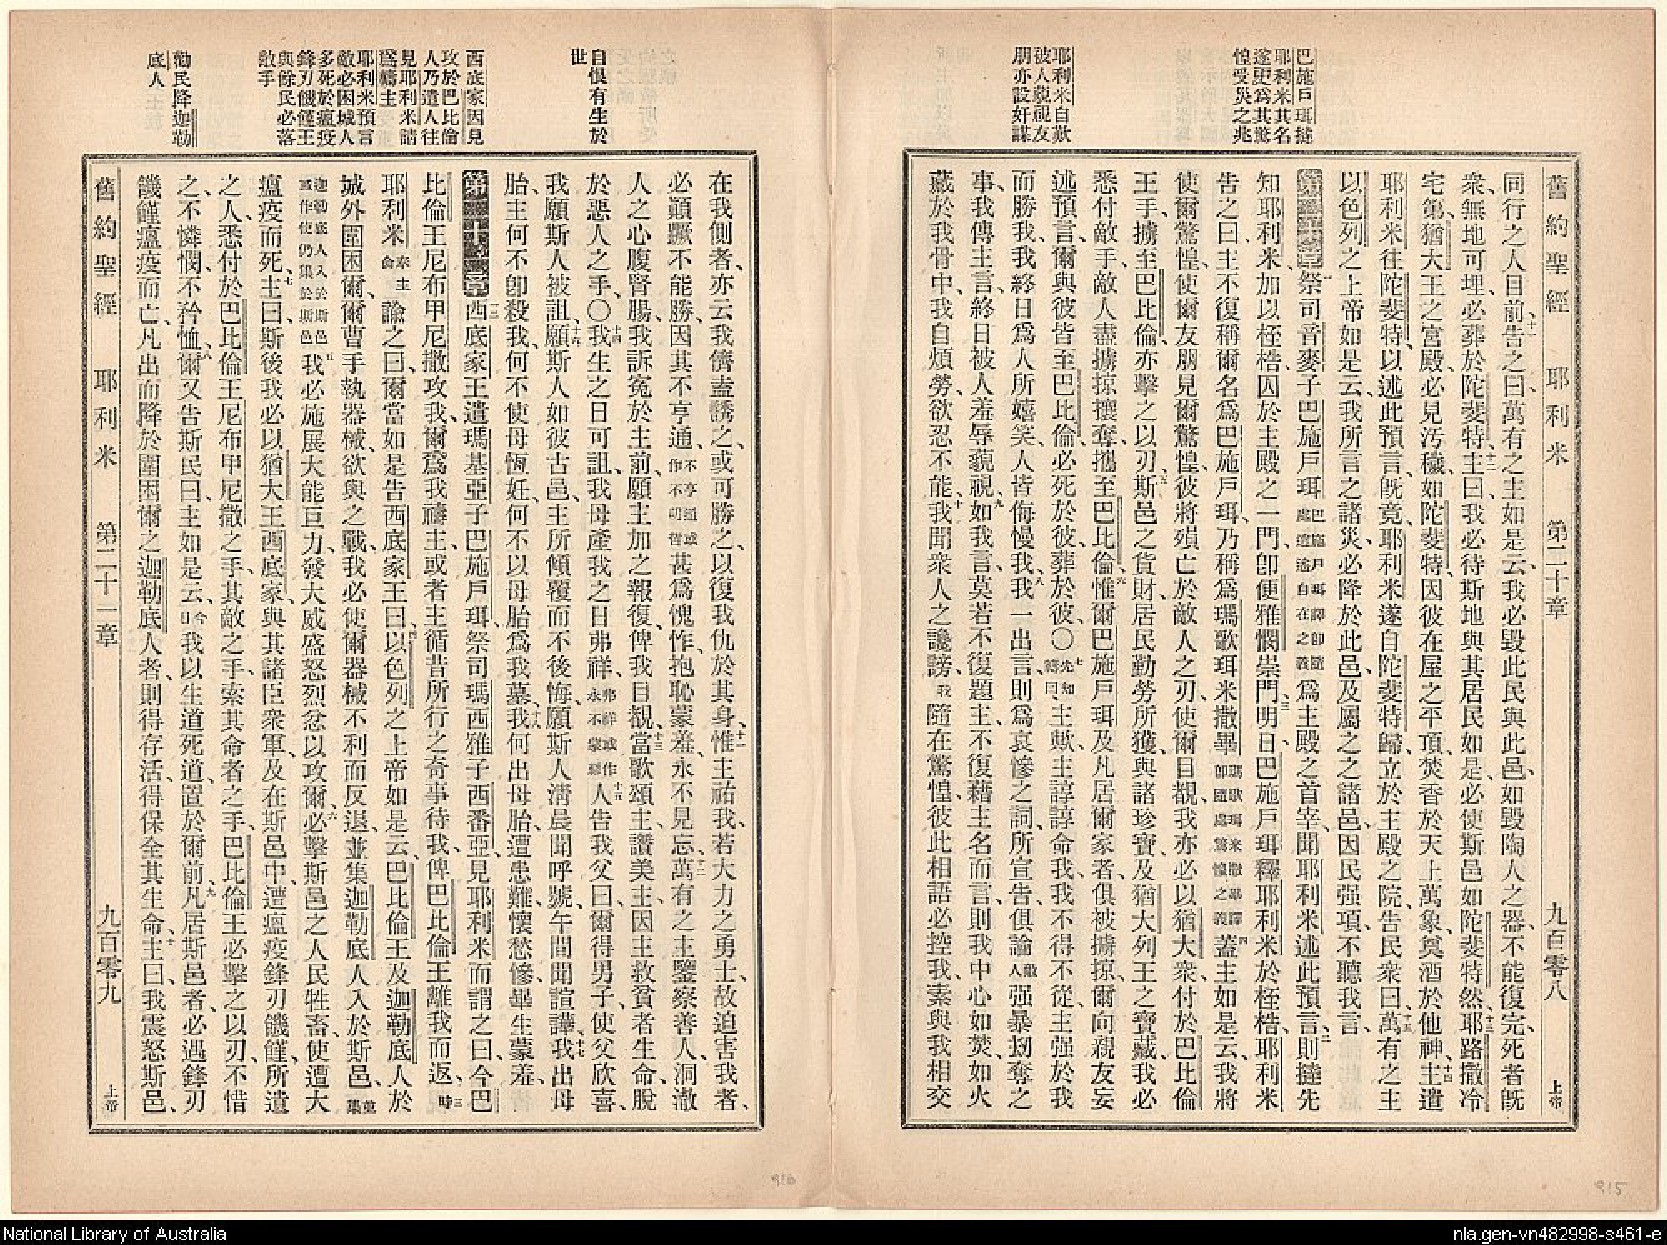 舊約聖經 耶利米 第二十章 九百零八 上帝
巴施戶珥撻
耶利米其名
遂更爲其驚
惶受災之兆
耶利米自歎
被人藐視友
朋亦設奸謀
同行之人目前、十一告之曰、萬有之主如是云、我必毀此民與此邑、如毀陶人之器、不能復完、死者既
衆、無地可埋、必葬於陀斐特、十二主曰、我必待斯地與其居民如是、必使斯邑如陀斐特然、十三耶路撒冷
宅第、猶大王之宮殿、必見汚穢、如陀斐特、因彼在屋之平頂、焚香於天上萬象、奠酒於他神、十四主遣
耶利米往陀斐特、以述此預言、既竟、耶利米遂自陀斐特歸、立於主殿之院、告民衆曰、十五萬有之主
以色列之上帝如是云、我所言之諸災、必降於此邑、及屬之之諸邑、因民强項、不聽我言、
第二十章 祭司音麥子巴施戶珥巴施戶珥譯卽隨處逍遙自在之義爲主殿之首宰、聞耶利米述此預言、二則撻先
知耶利米、加以桎梏、囚於主殿之一門、卽便雅憫崇門、三明日、巴施戶珥釋耶利米於桎梏、耶利米
告之曰、主不復稱爾名爲巴施戶珥、乃稱爲瑪歌珥米撒畢瑪歌珥米撒畢譯卽四處驚惶之義四蓋主如是云、我將
使爾驚惶、使爾友朋見爾驚惶、彼將殞亡於敵人之刃、使爾目覩、我亦必以猶大衆付於巴比倫
王手、擄至巴比倫、亦擊之以刃、五斯邑之貨財、居民勤勞所獲、與諸珍寶、及猶大列王之寶藏、我必
悉付敵手、敵人盡擄掠攘奪、攜至巴比倫、六惟爾巴施戶珥及凡居爾家者、俱被擄掠、爾向親友妄
述預言、爾與彼皆至巴比倫、必死於彼、葬於彼〇七先知禱曰主歟、主諄諄命我、我不得不從、主强於我
而勝我、我終日爲人所嬉笑、人皆侮慢我、八我一出言、則爲哀慘之詞、所宣告、俱論敵人强暴刼奪之
事、我傳主言、終日被人羞辱藐視、九如我言、莫若不復題主、不復藉主名而言、則我中心如焚、如火
藏於我骨中、我自煩勞、欲忍不能、十我聞衆人之讒謗、我隨在驚惶、彼此相語、必控我、素與我相交
自恨有生於
世
西底家因見
攻於巴比倫
人乃遣人往
見耶利米請
爲禱主
耶利米預言
敵必困城人
多死於瘟疫
鋒刃饑饉王
與餘民必落
敵手
勸民降迦勒
底人
在我側者、亦云我儕盍誘之、或可勝之、以復我仇於其身、十一惟主祐我、若大力之勇士、故迫害我者、
必顚蹶不能勝、因其不亨通不亨通或作不明哲甚爲愧怍、抱恥蒙羞、永不見忘、十二萬有之主、鑒察善人、洞澈
人之心腹腎腸、我訴寃於主前、願主加之報復、俾我目覩、十三當歌頌主、讚美主、因主救貧者生命脫
於惡人之手〇十四我生之日可詛、我母產我之日弗祥、弗祥或作永不蒙福十五人告我父曰、爾得男子、使父欣喜、
我願斯人被詛、十六願斯人如彼古邑、主所傾覆而不後悔、願斯人淸晨聞呼號、午間聞諠譁、十七我出母
胎、主何不卽殺我、何不使母恆妊、何不以母胎爲我墓、十八我何出母胎、遭患難、懷愁慘、畢生蒙羞、
第二十一章 西底家王遣瑪基亞子巴施戶珥、祭司瑪西雅子西番亞、見耶利米而謂之曰、二今巴
比倫王尼布甲尼撒攻我、爾爲我禱主、或者主循昔所行之奇事待我、俾巴比倫王離我而返、三時
耶利米奉主命諭之曰、爾當如是告西底家王曰、四以色列之上帝如是云、巴比倫王及迦勒底人於
城外圍困爾、爾曹手執器械、欲與之戰、我必使爾器械不利而反退、並集迦勒底人入於斯邑、
迦勒底人入於斯邑五我必施展大能巨力、發大威盛怒烈忿以攻爾、六必擊斯邑之人民牲畜、使遭大
瘟疫而死、七主曰、斯後我必以猶大王西底家、與其諸臣衆軍、及在斯邑中遭瘟疫鋒刃饑饉、所遺
之人、悉付於巴比倫王尼布甲尼撒之手、其敵之手、索其命者之手、巴比倫王必擊之以刃、不惜
之、不憐憫、不矜恤、八爾又告斯民曰、主如是云、今日我以生道死道、置於爾前、九凡居斯邑者、必遇鋒刃
饑饉瘟疫而亡、凡出而降於圍困爾之迦勒底人者、則得存活、得保全其生命、十主曰、我震怒斯邑、
舊約聖經 耶利米 第二十一章 九百零九 上帝
916
915
National Library of Australia
nla.gen-vn482998-s461-e